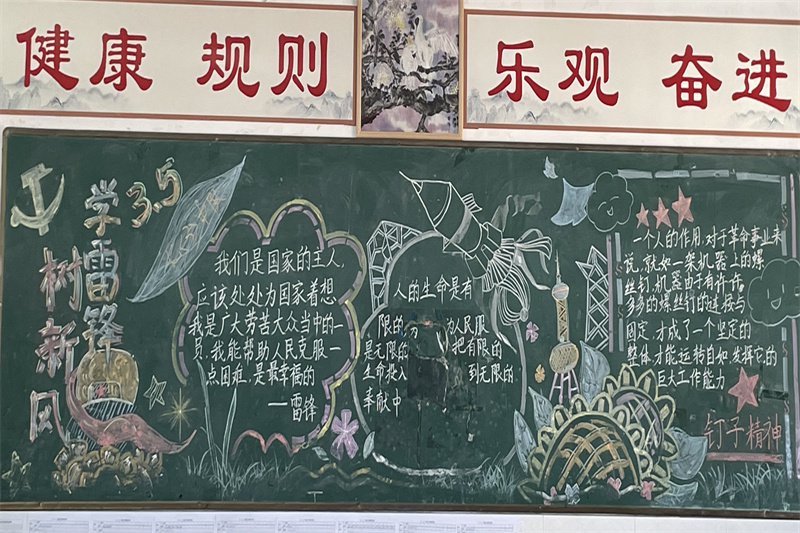 健康 规则
乐观 奋进
3.5
学雷锋
树新风
我们是国家的主人,
应该处处为国家着想
我是广大劳苦大众当中的一
员,我能帮助人民克服一
点困难,是最幸福的
—雷锋
人的生命是有
限的 为人民服
是无限的 把有限的
生命投入 到无限的
奉献中
一个人的作用,对于革命事业来
说,就如一架机器上的螺
丝钉,机器由于有许许
多多的螺丝钉的连接与
固定,才成了一个坚定的
整体,才能运转自如,发挥它的
巨大工作能力
钉子精神